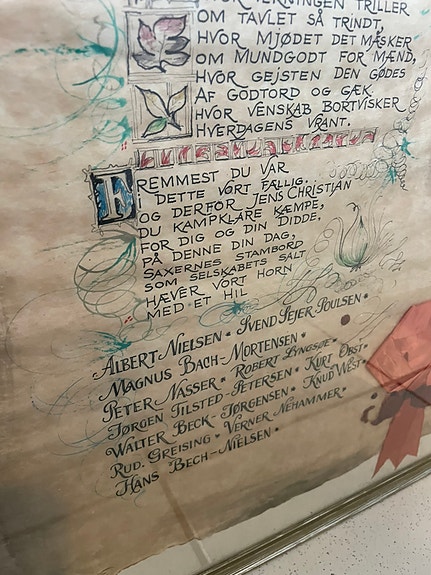 HVOR TERNINGEN TRILLER
OM TAVLET SÅ TRINDT,
HVOR MJØDET DET MASKER
OM MUNDGODT FOR MÆND,
HVOR GEJSTEN DEN GØDES
AF GODTORD OG GÆK
HVOR VENSKAB BORTVISKER
HVERDAGENS VRANT.
FREMMEST DU VAR
I DETTE VORT FÆLLIG.
OG DERFOR JENS CHRISTIAN
DU KAMPKLARE KÆMPE,
FOR DIG OG DIN DIDDE.
PÅ DENNE DIN DAG,
SAXERNES STAMBORD
SOM SELSKABETS SALT
HÆVER VORT HORN
MED ET HIL
ALBERT NIELSEN • SVEND SEJER POULSEN •
MAGNUS BACH-MORTENSEN •
PETER NASSER • ROBERT LYNGSØE •
JØRGEN TILSTED-PETERSEN • KURT OBST •
WALTER BECK-JØRGENSEN • KNUD WEST •
RUD. GREISING • VERNER NEHAMMER •
HANS BECH-NIELSEN •